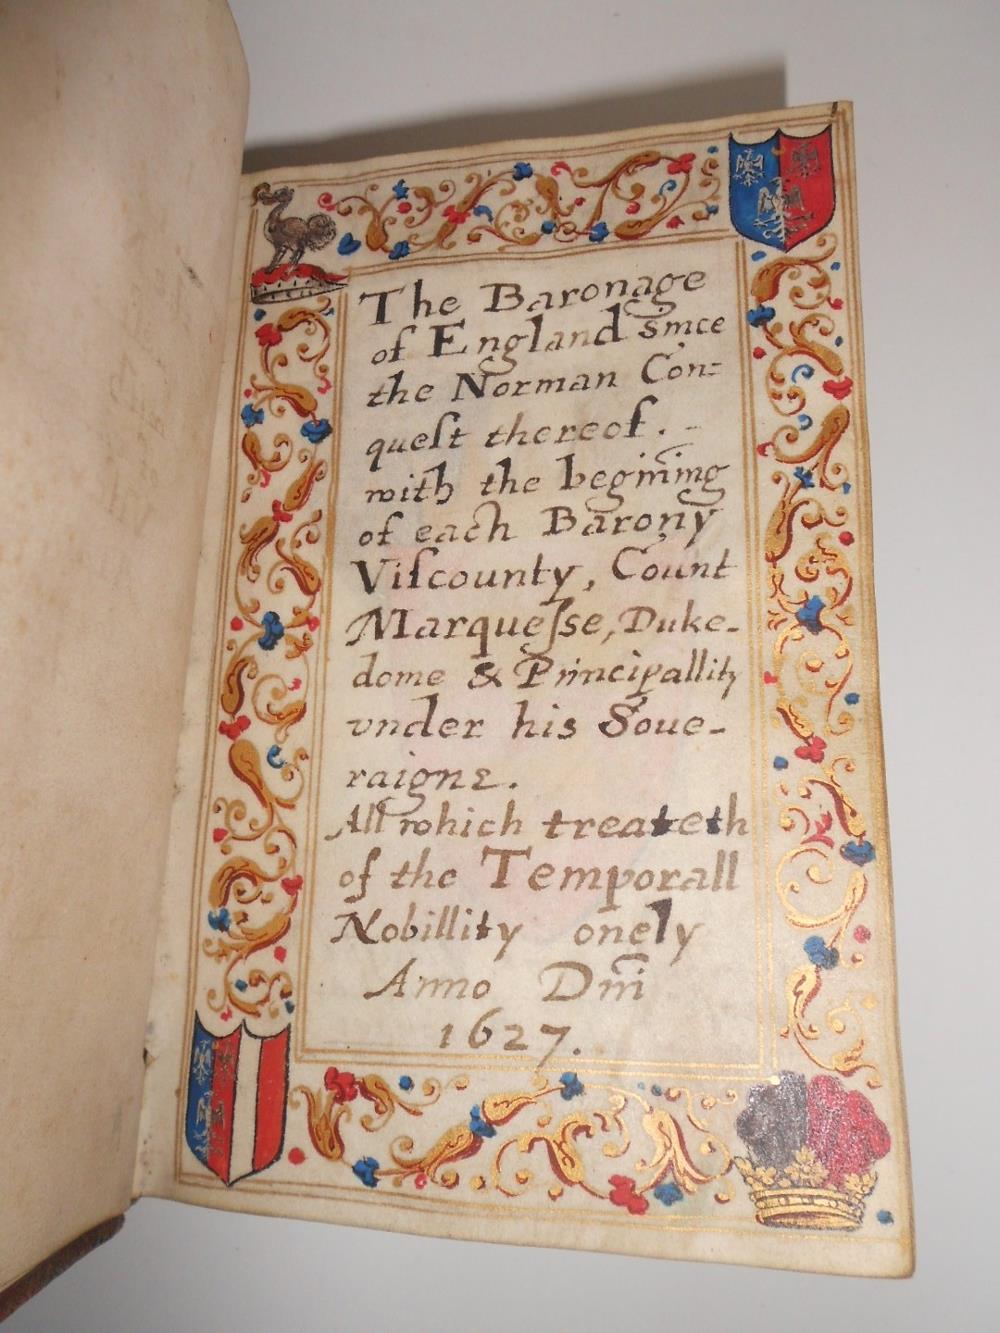 The Baronage
of England since
the Norman Con=
queſt thereof.
with the begin̄ing
of each Barony
Viſcounty, Count
Marqueſse, Duke-
dome & Principallity
vnder his Soue-
raigne.
All which treateth
of the Temporall
Nobillity onely
Anno Dm̄i
1627.